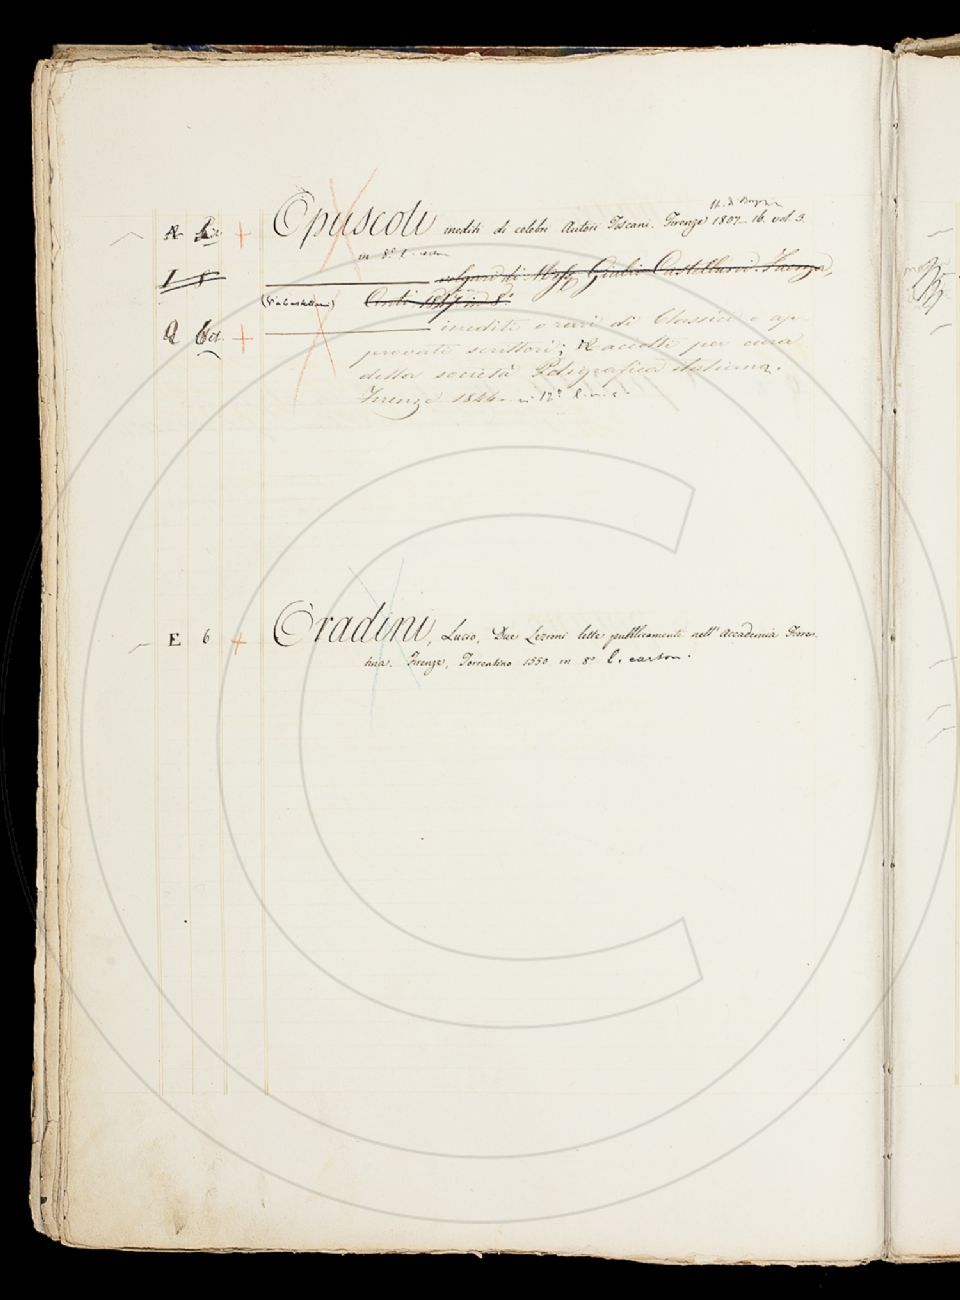 Opuscoli inediti di celebri Autori Toscani. Firenze 1807-16. vol 3.
in 8.° l.
I 8 volgari di Mess. Giulio Castellani. Faenza,
(V. a Castellani) 1847 in 8.°
Q 6 inediti o rari di Classici o ap-
provati scrittori; Raccolti per cura
della società Poligrafica italiana.
Firenze 1844. in 12.°
E 6 + Oradini, Lucio, Due Lezioni lette pubblicamente nell' Accademia Fioren-
tina. Firenze, Torrentino 1550 in 8° l. carton.